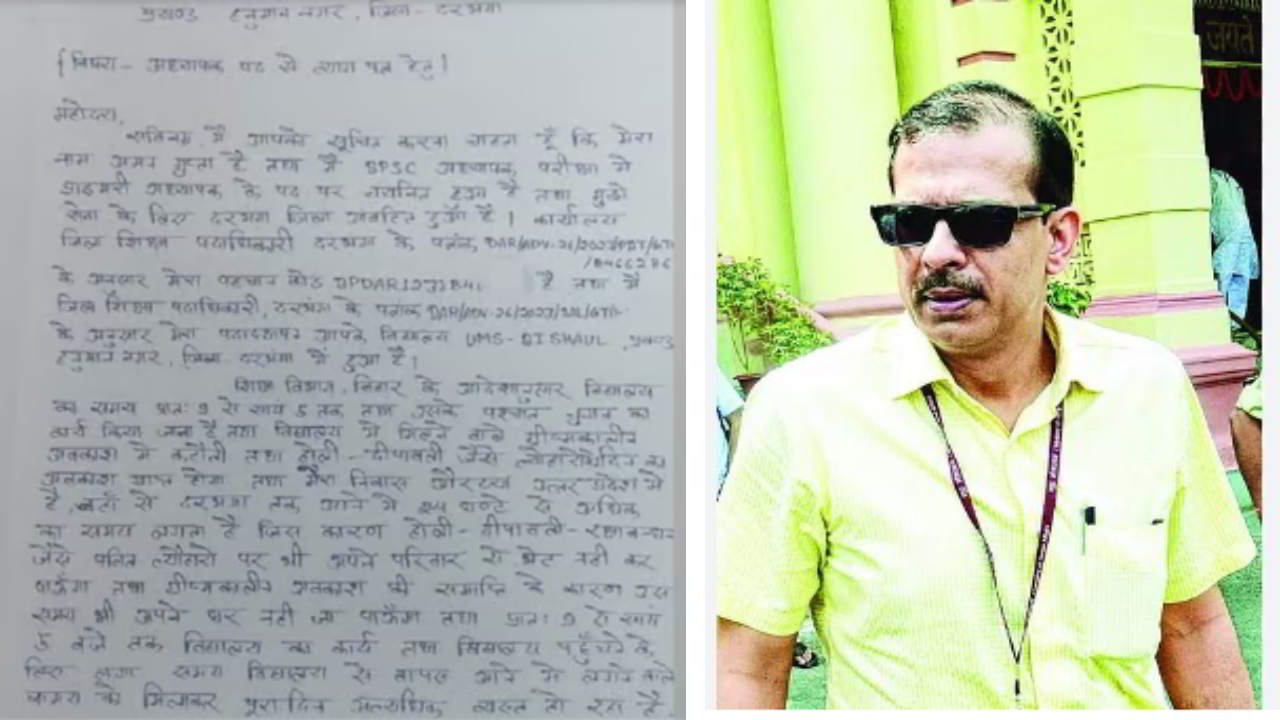 प्रखण्ड हनुमान नगर, जिला - दरभंगा
{विषय - अध्यापक पद से त्याग पत्र हेतु}
महोदय,
सविनय मैं आपको सूचित करना चाहता हूँ कि मेरा
नाम अमन गुप्ता है तथा मैं BPSC अध्यापक परीक्षा में
प्राइमरी अध्यापक के पद पर चयनित हुआ हूँ तथा मुझे
सेवा के लिए दरभंगा जिला आवंटित हुआ है। कार्यालय
जिला शिक्षा पदाधिकारी दरभंगा के पत्रांक
के अनुसार मेरा पहचान कोड है तथा मैं
जिला शिक्षा पदाधिकारी, दरभंगा के पत्रांक
के अनुसार मेरा पदस्थापन आपके विद्यालय UMS- प्रखण्ड
हनुमान नगर, जिला दरभंगा में हुआ है।
शिक्षा विभाग, बिहार के आदेशानुसार विद्यालय
का समय प्रातः 9 से सायं 5 तक तथा उसके पश्चात चुनाव का
कार्य किया जाता है तथा विद्यालय में मिलने वाले ग्रीष्मकालीन
अवकाश में कटौती तथा होली - दीपावली जैसे का
अवकाश प्राप्त होगा तथा मेरा निवास उत्तर प्रदेश में
है, जहाँ से दरभंगा तक आने में घण्टे से अधिक
का समय लगता है जिस कारण होली - दीपावली -
जैसे पवित्र त्यौहारों पर भी अपने परिवार से भेंट नहीं कर
पाऊँगा तथा ग्रीष्मकालीन अवकाश की समाप्ति के कारण उस
समय भी अपने घर नहीं जा पाऊँगा तथा प्रातः 9 से सायं
5 बजे तक विद्यालय का कार्य तथा विद्यालय पहुँचने के
लिए लगा समय विद्यालय से वापस आने में लगने वाले
समय को मिलाकर पूरा दिन अत्यधिक व्यस्त हो रहा है
जयते